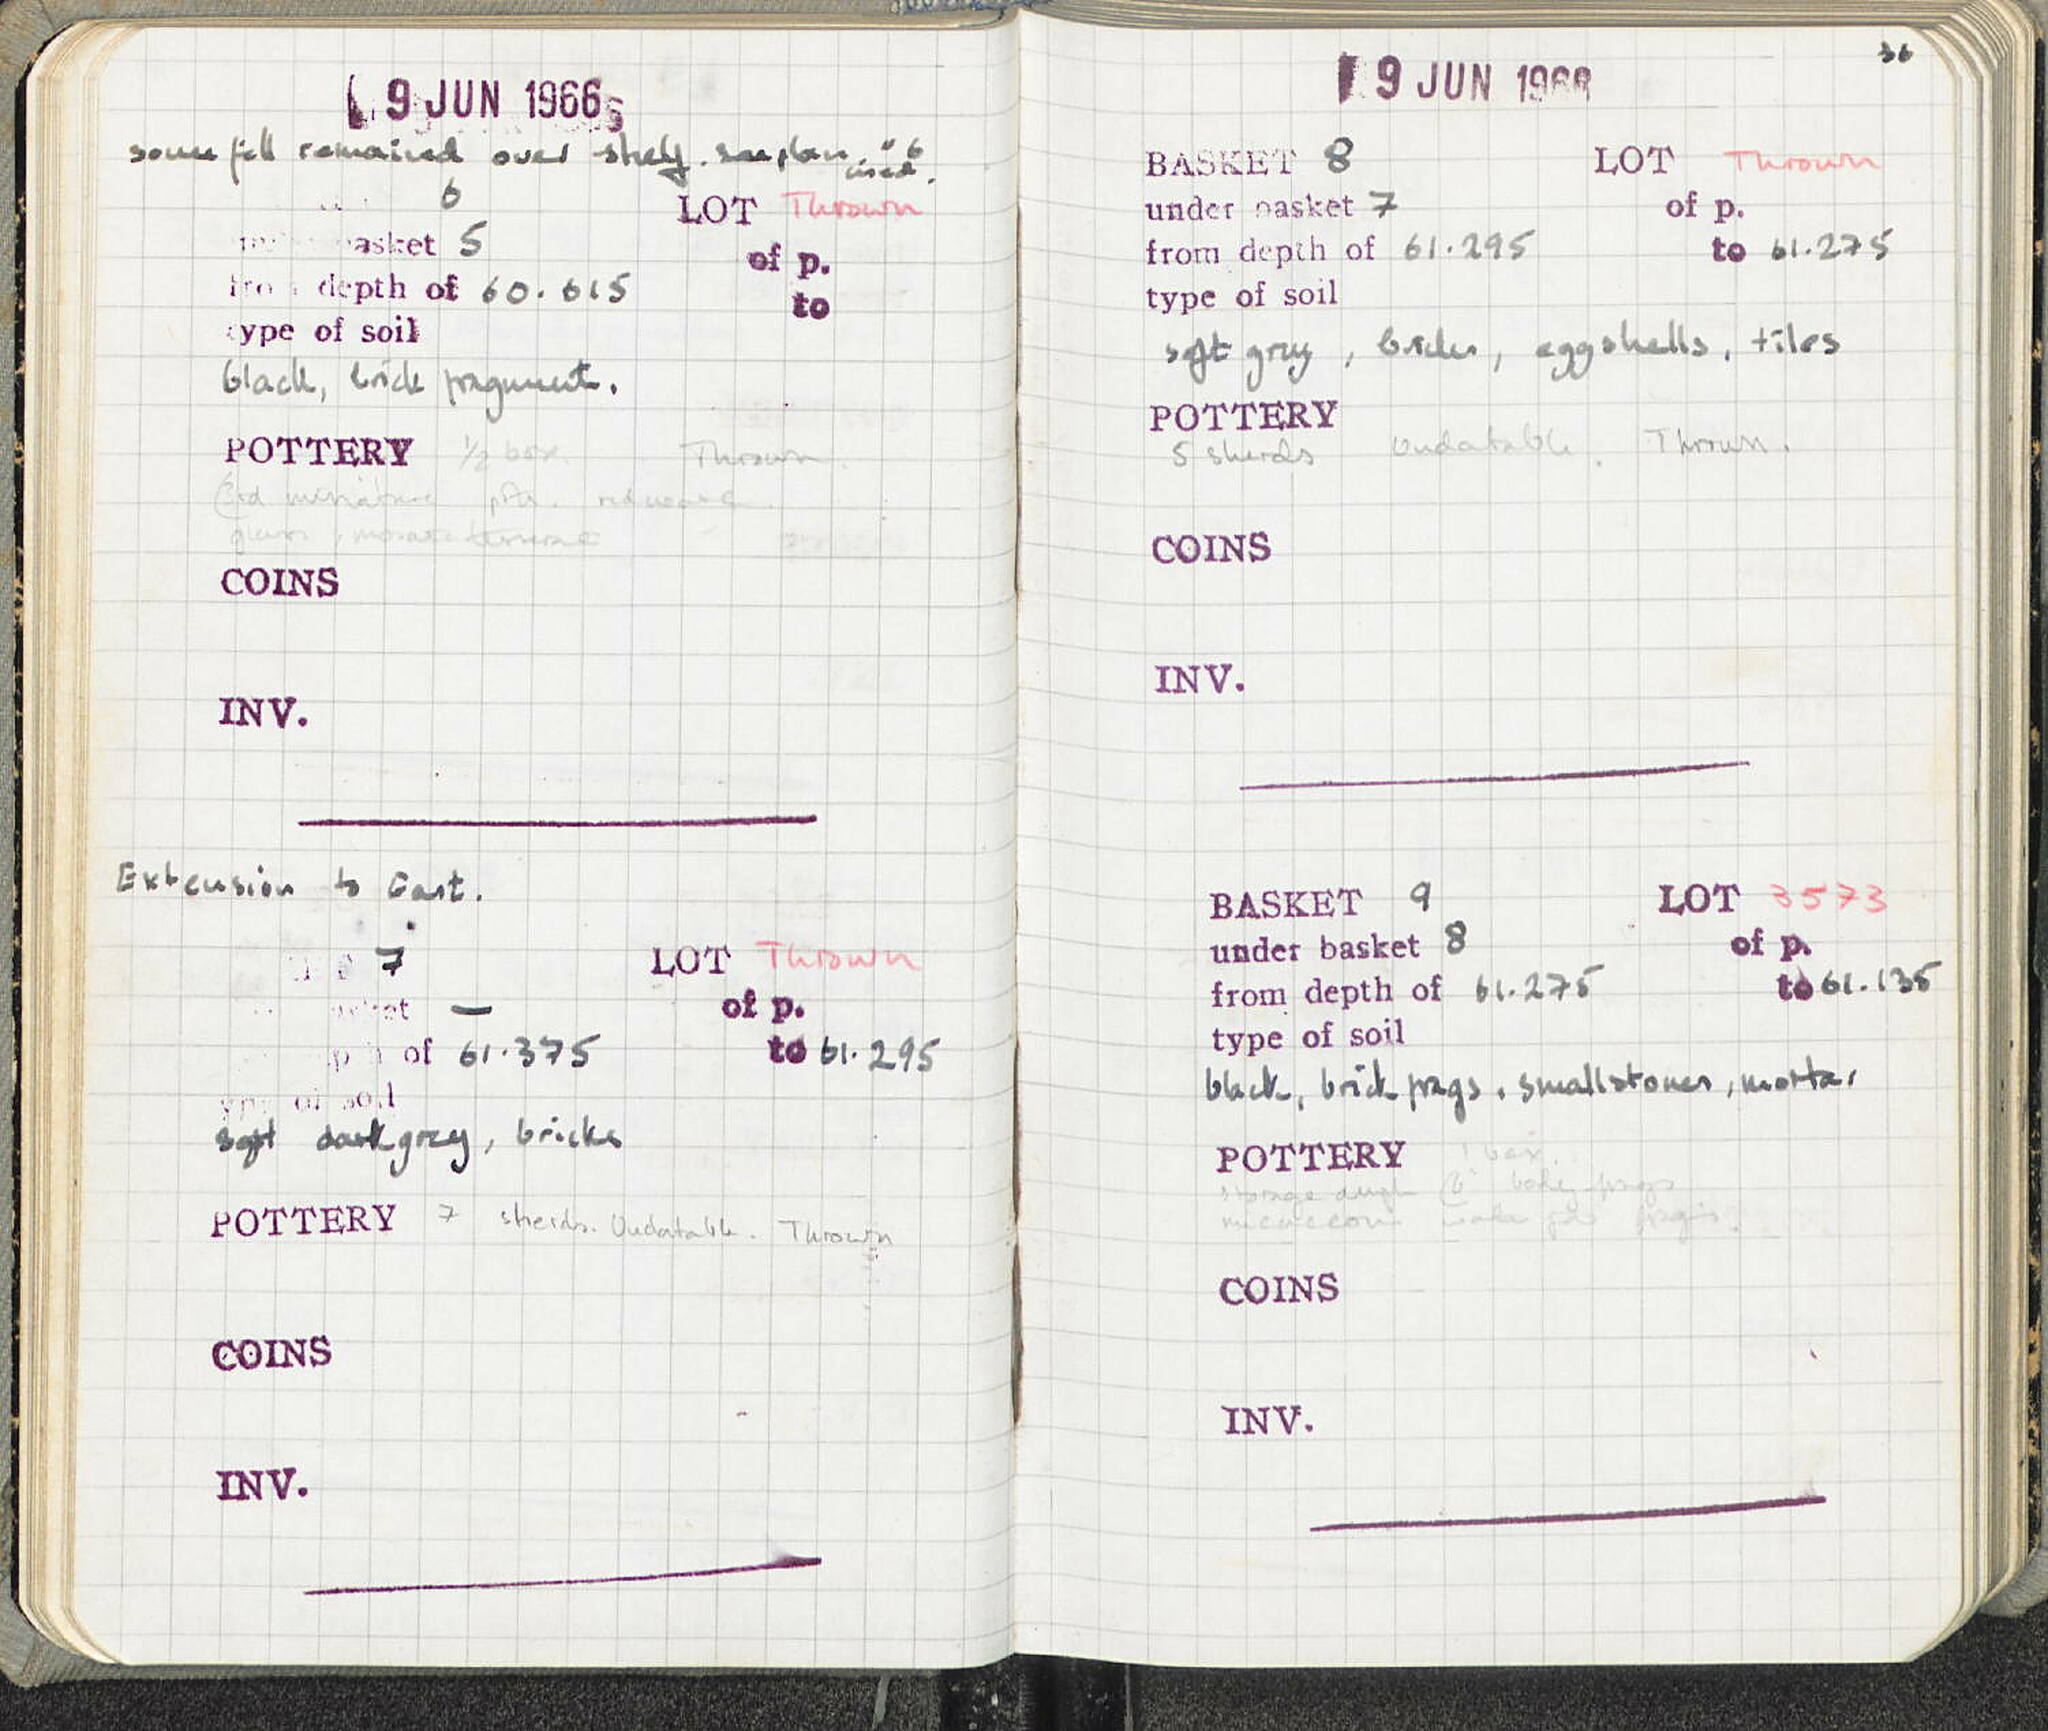 9 JUN 1966
some fill remained over shelf. see plan. " 6
used.
6 LOT Thrown
basket 5 of p.
from depth of 60.615 to
type of soil
black, brick fragment.
POTTERY 1/2 box. Thrown.
miniature red ware
glass, mosaic tesserae
COINS
INV.
Extension to East.
7 LOT Thrown
basket — of p.
depth of 61.375 to 61.295
type of soil
soft dark grey, bricks
POTTERY 7 sherds. Undatable. Thrown
COINS
INV.
36
9 JUN 1966
BASKET 8 LOT Thrown
under basket 7 of p.
from depth of 61.295 to 61.275
type of soil
soft grey, bricks, eggshells, tiles
POTTERY
5 sherds Undatable. Thrown.
COINS
INV.
BASKET 9 LOT 3573
under basket 8 of p.
from depth of 61.275 to 61.135
type of soil
black, brick frags, small stones, mortar
POTTERY 1 box.
storage body frags
frags.
COINS
INV.